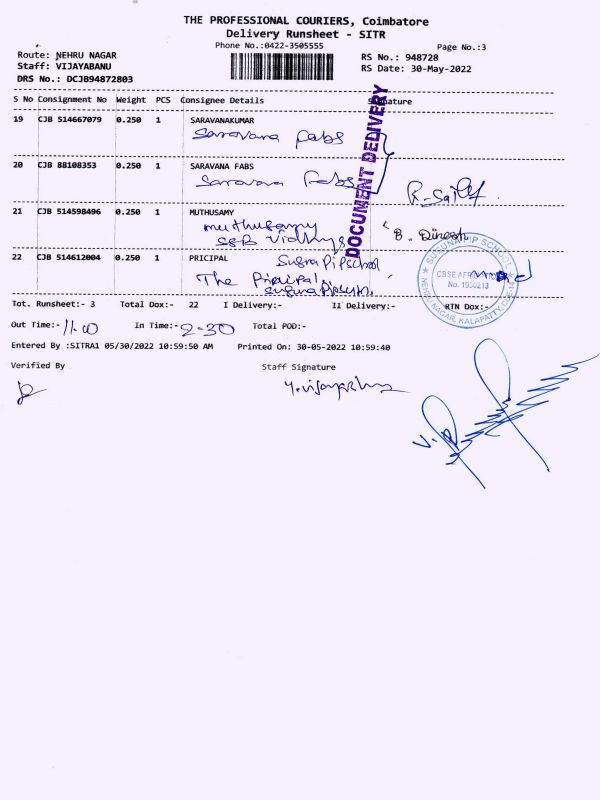 THE PROFESSIONAL COURIERS, Coimbatore
Delivery Runsheet - SITR
Phone No.:0422-3505555 Page No.:3
Route: NEHRU NAGAR RS No.: 948728
Staff: VIJAYABANU RS Date: 30-May-2022
DRS No.: DCJB94872803
S No Consignment No Weight PCS Consignee Details Signature
19 CJB 514667079 0.250 1 SARAVANAKUMAR
Saravana fabs
20 CJB 88108353 0.250 1 SARAVANA FABS
Saravana Fabs
21 CJB 514598496 0.250 1 MUTHUSAMY
muthusamy B. Dinesh
SSB
22 CJB 514612004 0.250 1 PRICIPAL
The
DOCUMENT DELIVERY
SUGUNA PIP SCHOOL
CBSE AFFILIATION
No. 1930213
NEHRU NAGAR, KALAPATTY, CBE-14
Tot. Runsheet:- 3 Total Dox:- 22 I Delivery:- II Delivery:- RTN Dox:-
Out Time:- 11.00 In Time:- 2-30 Total POD:-
Entered By :SITRA1 05/30/2022 10:59:50 AM Printed On: 30-05-2022 10:59:40
Verified By Staff Signature